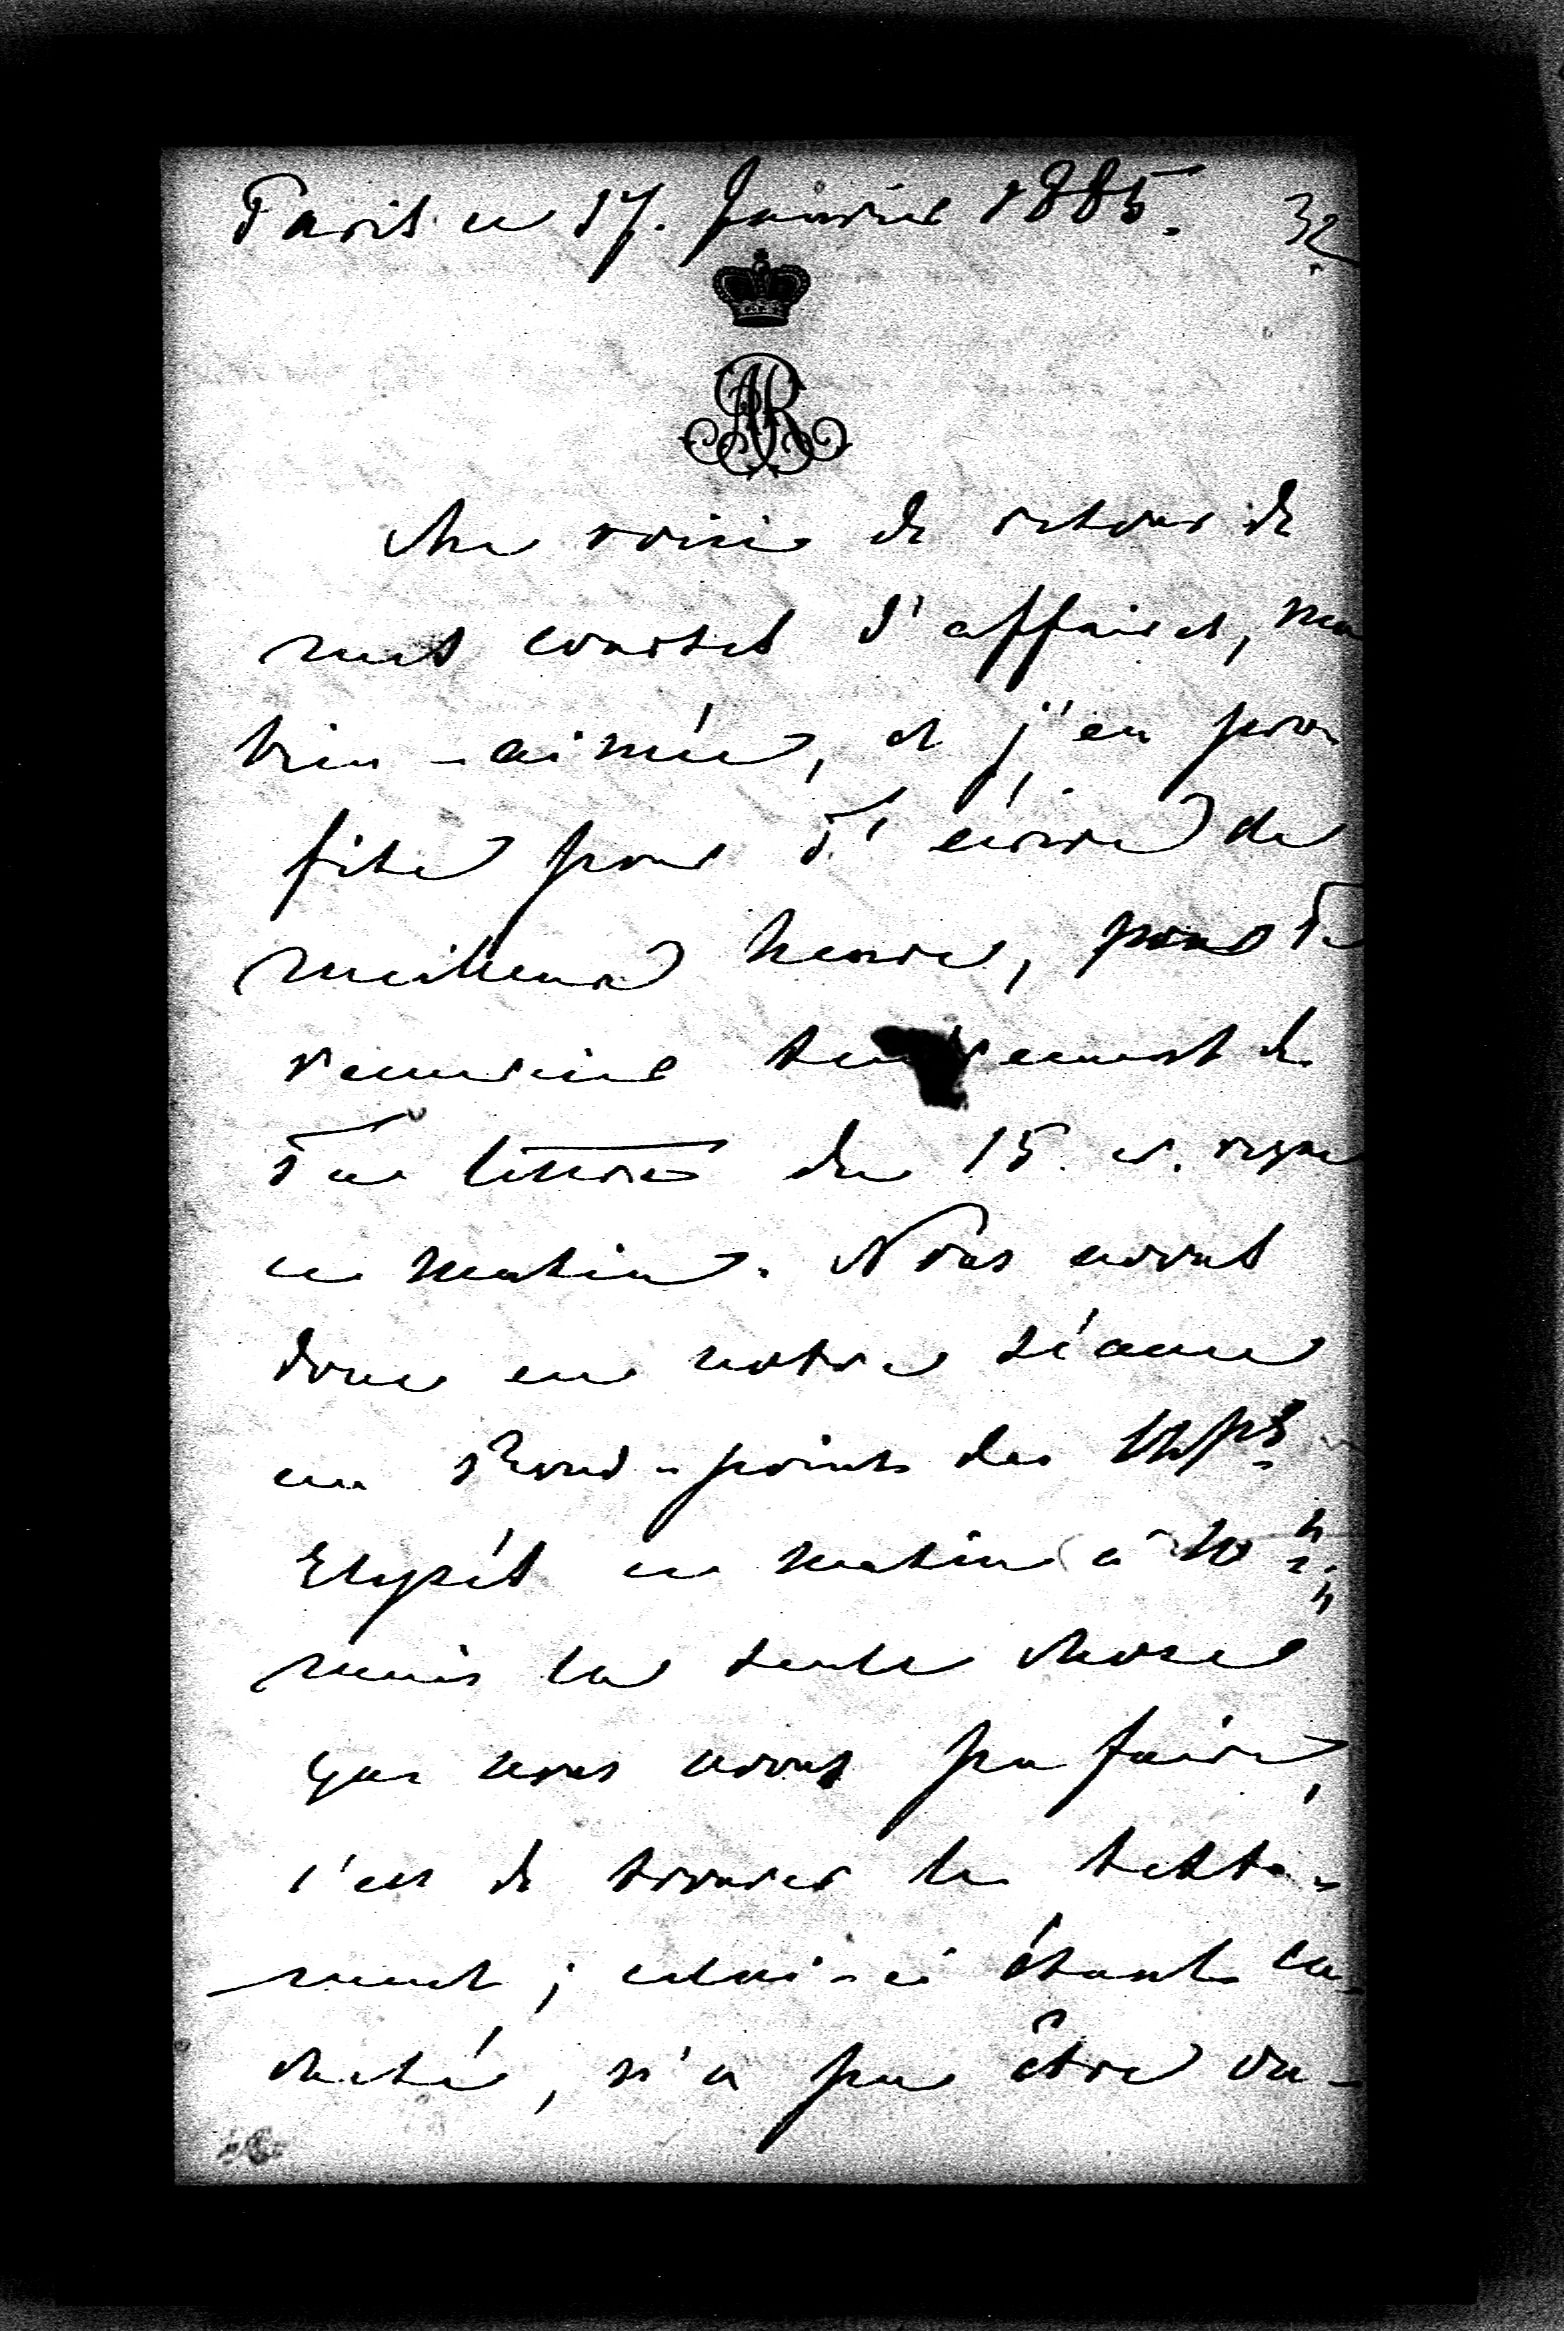 Paris ce 17. Janvier 1885. 32
AR
Me voici de retour de
mes courses d'affaires, ma
bien-aimée, et j'en pro
fite pour T'écrire de
meilleure heure, pour Te
remercier tendrement de
Ta lettre du 15. et. reçue
ce matin. Nous avons
donc eu notre séance
au Rond-point des Chps
Elysés ce matin à 10 h
mais la seule chose
que nous avons pu faire,
c'est de trouver le testa-
ment; celui-ci étant ca-
cheté, n'a pu être ou-